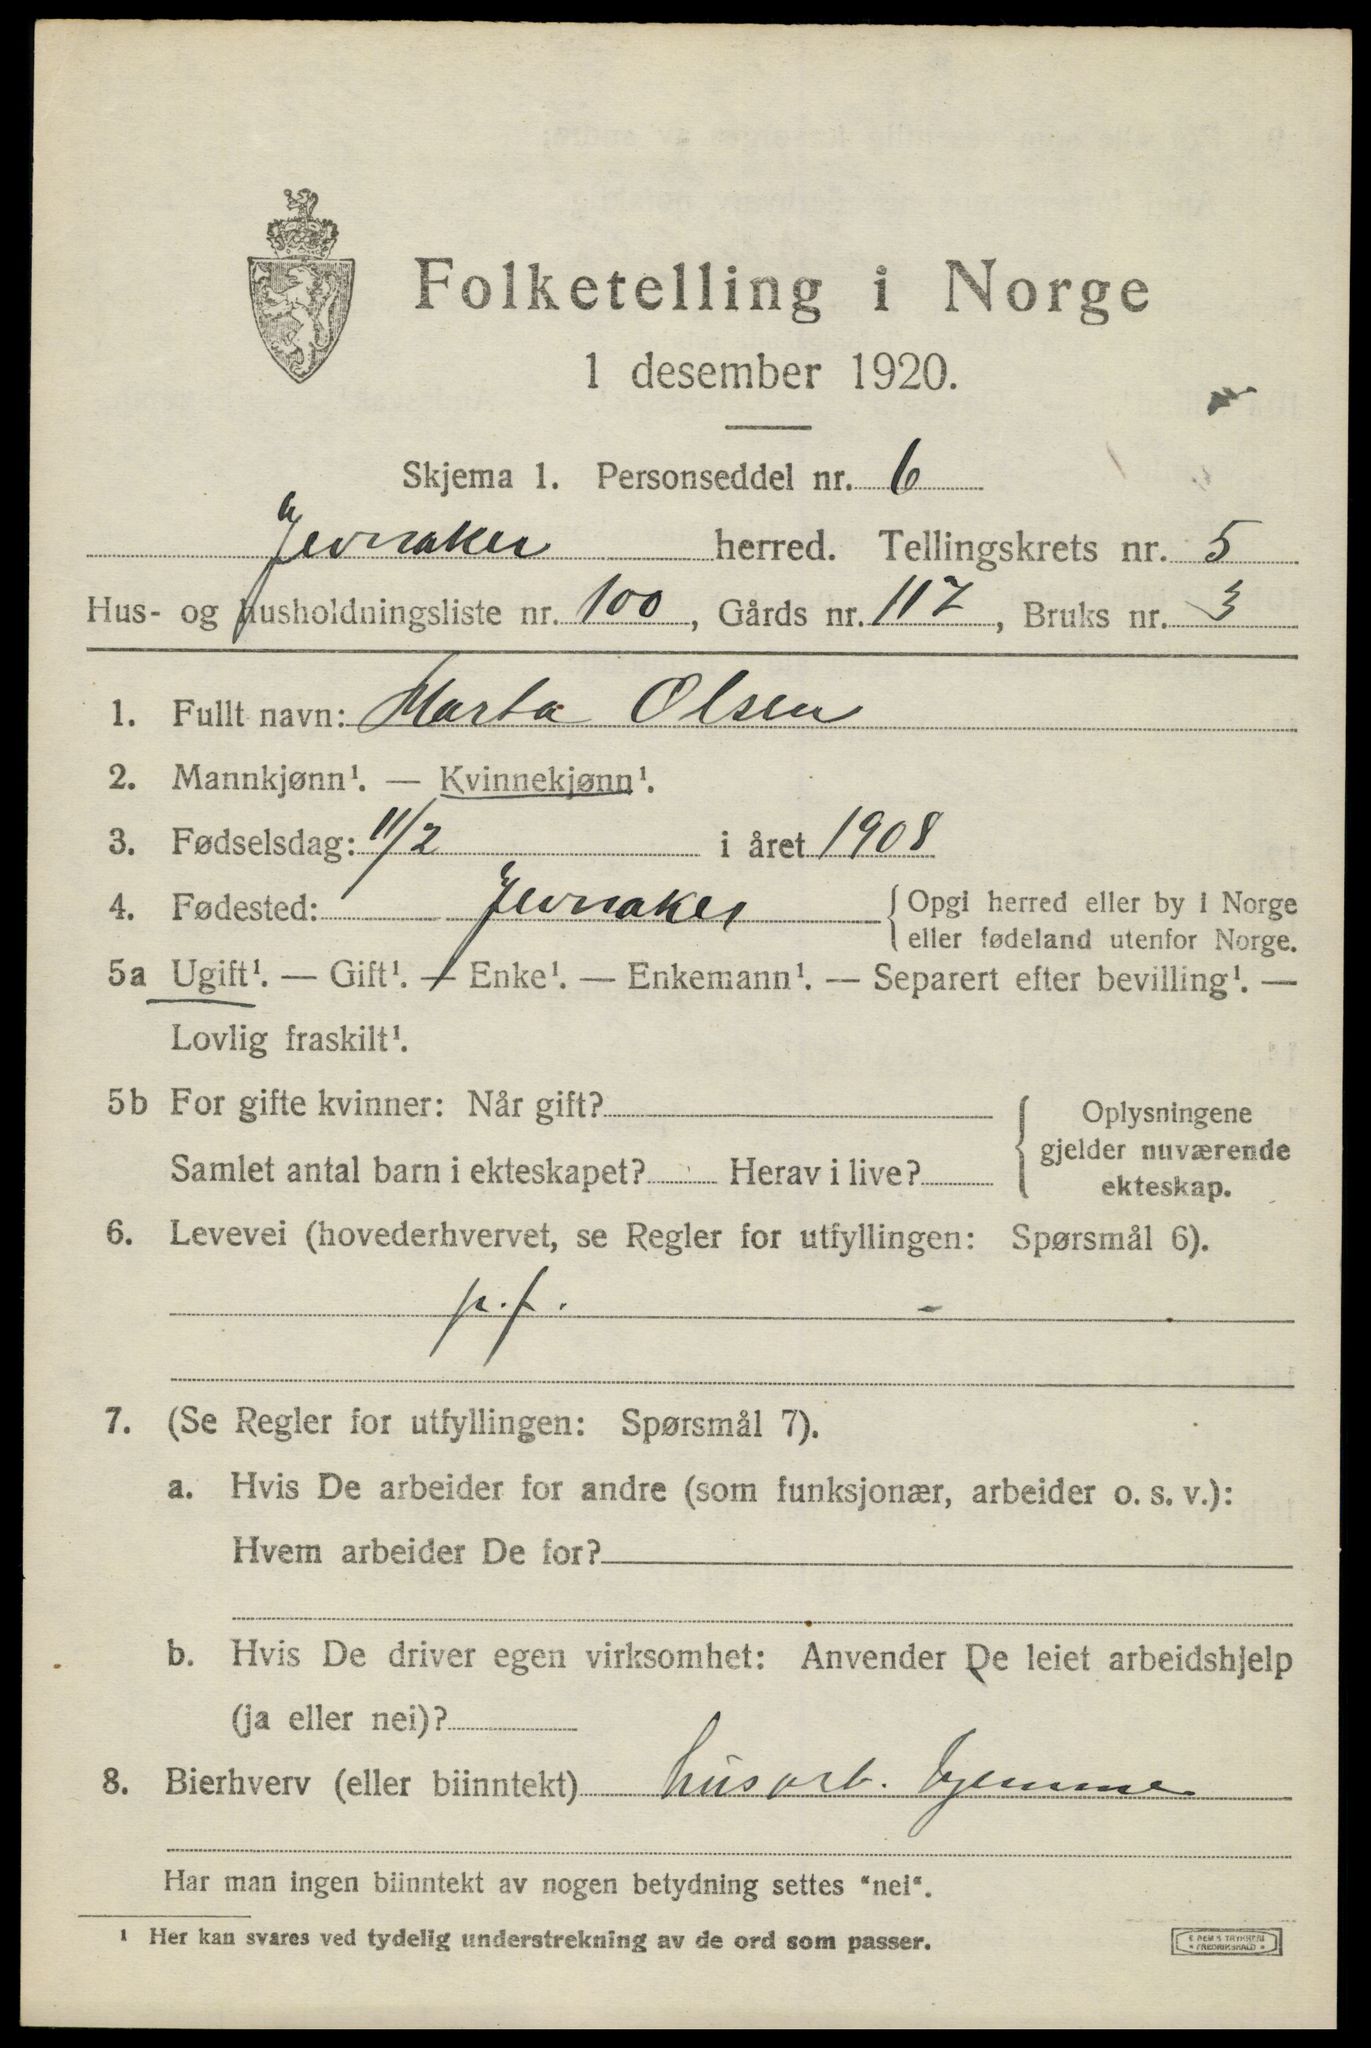 Folketelling i Norge
1 desember 1920.
Skjema 1. Personseddel nr. 6
Jevnaker herred. Tellingskrets nr. 5
Hus- og husholdningsliste nr. 100, Gårds nr. 117, Bruks nr. 3
1. Fullt navn: Marta Olsen
2. Mannkjønn¹. — Kvinnekjønn¹.
3. Fødselsdag: 11/2 i året 1908
4. Fødested: Jevnaker { Opgi herred eller by i Norge
eller fødeland utenfor Norge.
5a Ugift¹. — Gift¹. — Enke¹. — Enkemann¹. — Separert efter bevilling¹. —
Lovlig fraskilt¹.
5b For gifte kvinner: Når gift?
Samlet antal barn i ekteskapet? Herav i live?
{ Oplysningene
gjelder nuværende
ekteskap.
6. Levevei (hovederhvervet, se Regler for utfyllingen: Spørsmål 6).
p.f. -
7. (Se Regler for utfyllingen: Spørsmål 7).
a. Hvis De arbeider for andre (som funksjonær, arbeider o. s. v.):
Hvem arbeider De for?
b. Hvis De driver egen virksomhet: Anvender De leiet arbeidshjelp
(ja eller nei)?
8. Bierhverv (eller biinntekt) husarb. hjemme
Har man ingen biinntekt av nogen betydning settes "nei".
¹ Her kan svares ved tydelig understrekning av de ord som passer.